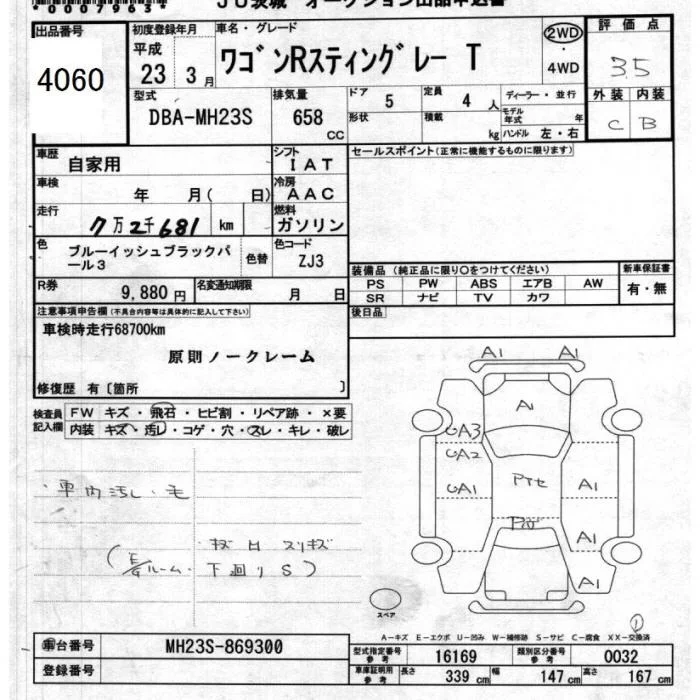 *00079630*
JU茨城 オークション出品申込書
出品番号 4060
初度登録年月 平成 23 3月
車名・グレード ワゴンRスティングレー T
2WD ・ 4WD
評価点 3.5
外装 内装
C B
型式 DBA-MH23S
排気量 658 CC
ドア 5
定員 4 人
ディーラー・並行
形状
積載 kg
モデル年式 年
ハンドル 左・右
車歴 自家用
シフト IAT
セールスポイント(正常に機能するものに限ります)
車検 年 月( 日)
冷房 AAC
走行 7万2千681 km
燃料 ガソリン
色 ブルーイッシュブラックパール3
色替
色コード ZJ3
装備品(純正品に限り○をつけてください)
新車保証書
PS PW ABS エアB AW
有・無
SR ナビ TV カワ
R券 9,880 円
名変通知期限 月 日
後日品
注意事項申告欄(不具合内容等は具体的に記入して下さい)
車検時走行68700km
原則ノークレーム
修復歴 有〔箇所 〕
検査員記入欄
FW キズ・飛石・ヒビ割・リペア跡・×要
内装 キズ・汚レ・コゲ・穴・スレ・キレ・破レ
・車内汚し・毛
キズ スリキズ
ルーム 下回りS)
A1 A1
A1
UA3
UA2
UA1
A1
A1
A1
スペア
①
A-キズ E-エクボ U-凹み W-補修跡 S-サビ C-腐食 XX-交換済
車台番号 MH23S-869300
登録番号
型式指定番号 参考 16169
類別区分番号 参考 0032
車庫証明用 参考 長さ 339 cm 幅 147 cm 高さ 167 cm